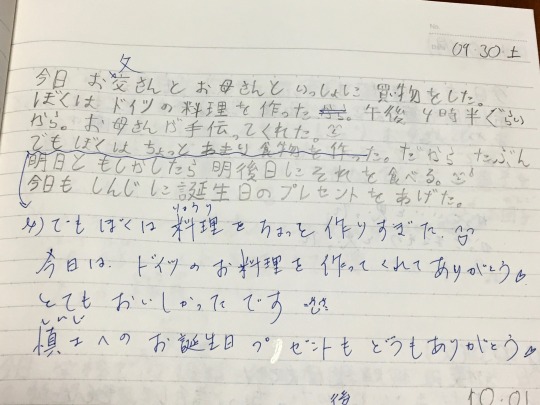 09.30 土
父
今日 お交さんと お母さんと いっしょに 買物をした。
ぼくは ドイツの料理を作った から。午後 4時半ぐらい
から。お母さんが 手伝ってくれた。
でも ぼくは ちょっと あまり食物を作った。だから たぶん
明日と もしかしたら 明後日に それを食べる。
今日も しんじに 誕生日の プレゼントを あげた。
↳) でも ぼくは 料理を ちょっと 作りすぎた。
りょうり
今日は、ドイツの お料理を 作ってくれて ありがとう
とても おいしかったです
しんじ
慎士への お誕生日 プレゼントも どうも ありがとう
後
10.01